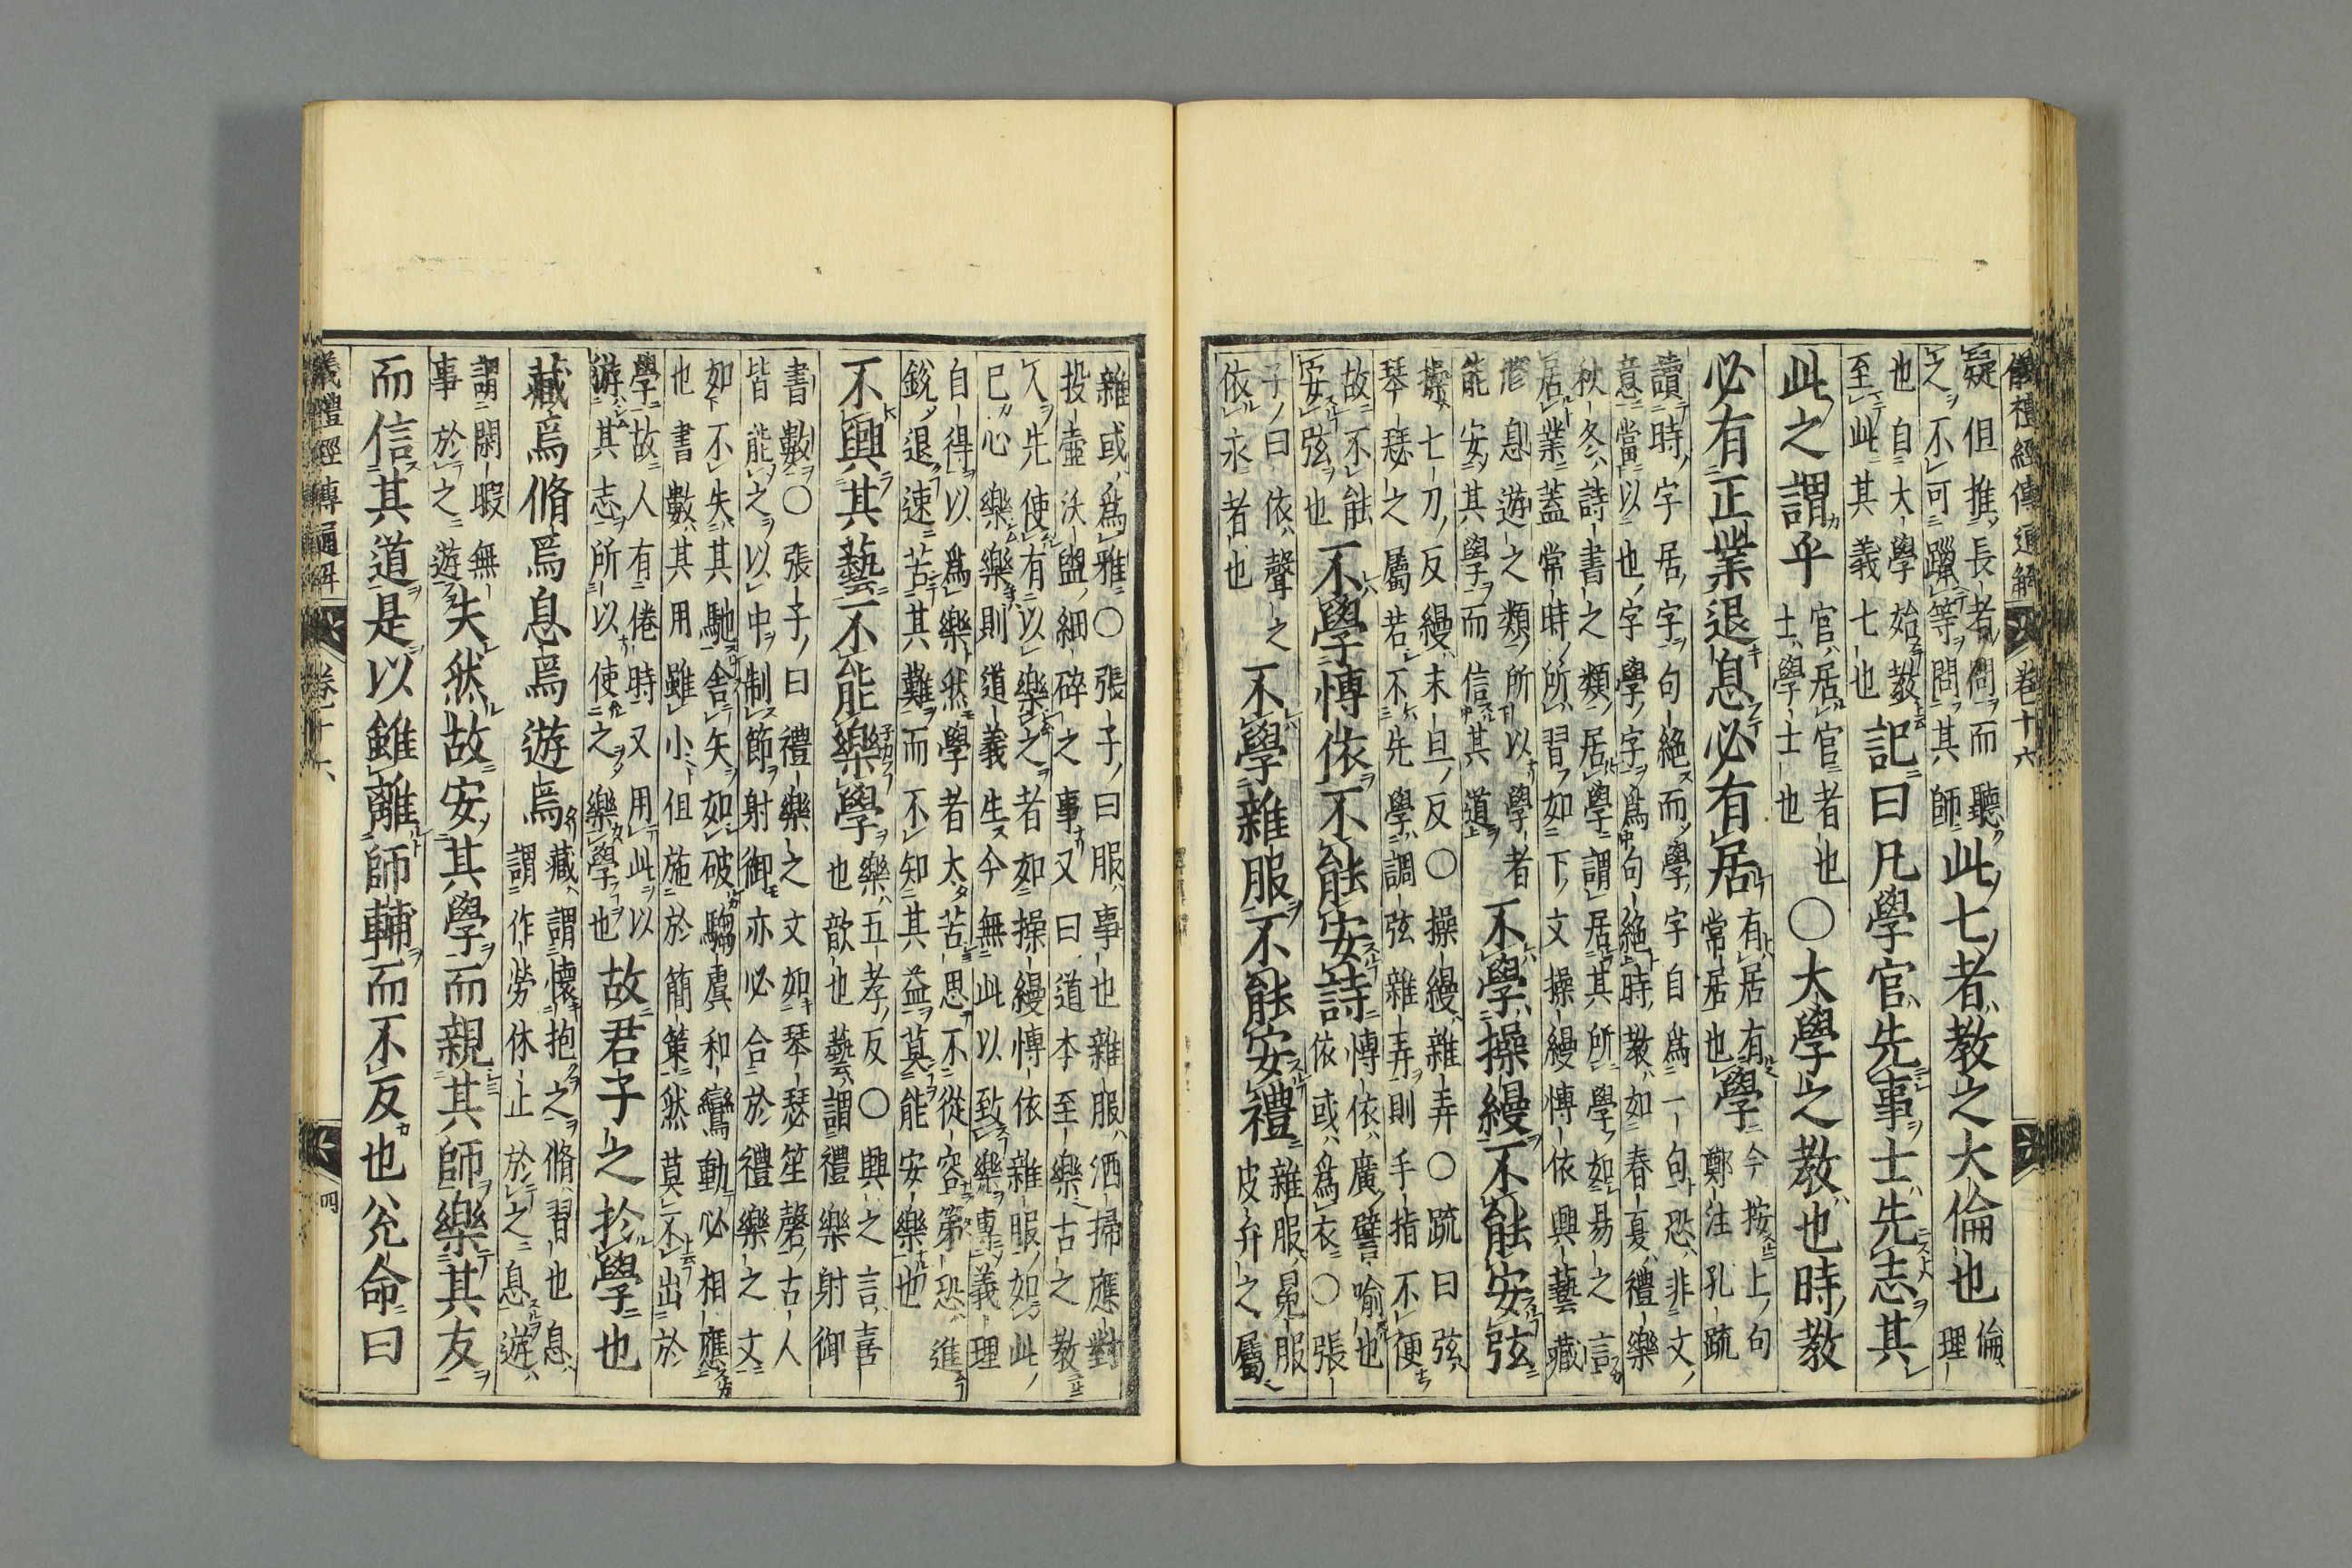 儀禮經傳通解 卷十六
疑但推長者問而聽
之不可躐等問其師
此七者教之大倫也
倫
理
也自大學始教
至此其義七也
記曰凡學官先事士先志其
此之謂乎
官居官者也
士學士也
○大學之教也時教
必有正業退息必有居
有居有
常居也
學
今按上句
鄭注孔疏
讀時字居字句絶而學字自爲一句恐非文
意當以也字學字爲句絶時教如春夏禮樂
秋冬詩書之類居學謂居其所學如易之言
居業蓋常時所習如下文操縵博依興藝藏
脩息遊之類所以學者
能安其學而信其道
不學操縵不能安弦
操七刀反縵末旦反○操縵雜弄○疏曰弦
琴瑟之屬若不先學調弦雜弄則手指不便
故不能
安弦也
不學博依不能安詩
博依廣譬喻也
依或爲衣○張
子曰依聲之
依永者也
不學雜服不能安禮
雜服冕服
皮弁之屬
雜或爲雅○張子曰服事也雜服洒掃應對
投壺沃盥細碎之事又曰道本至樂古之教
人先使有以樂之者如操縵博依雜服如此
已心樂樂則道義生今無此以致樂專義理
自得以爲樂然學者太苦思不從容第恐進
銳退速苦其難而不知其益莫能安樂也
不興其藝不能樂學
樂五孝反○興之言喜
也歆也藝謂禮樂射御
書數○張子曰禮樂之文如琴瑟笙磬古人
皆能之以中制節射御亦必合於禮樂之文
如不失其馳舍矢如破騶虞和鸞動必相應
也書數其用雖小但施於簡策然莫不出於
學故人有倦時又用此以
游其志所以使之樂學也
故君子之於學也
藏焉脩焉息焉遊焉
藏謂懷抱之脩習也息
謂作勞休止於之息遊
謂閑暇無
事於之遊
失然故安其學而親其師樂其友
而信其道是以雖離師輔而不反也兊命曰
儀禮經傳通解 卷十六 四